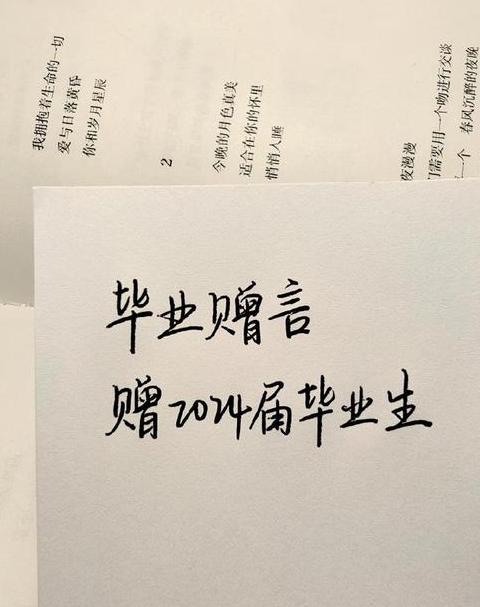 我拥抱着生命的一切
爱与日落黄昏
你和岁月星辰
2
今晚的月色真美
适合在你的怀里
悄悄入睡
夜漫漫
们需要用一个吻进行交谈
一个 春风沉醉的夜晚
毕业赠言
赠2024届毕业生